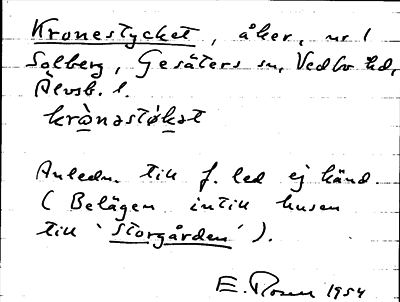 Kronestycket, åker, nr 1
Solberg, Gesäters sn, Vedbo hd,
Älvsb. l.
krònəstỳkət
Anledn. till f. led ej känd.
(Belägen intill husen
till 'Storgården').
E. 1954